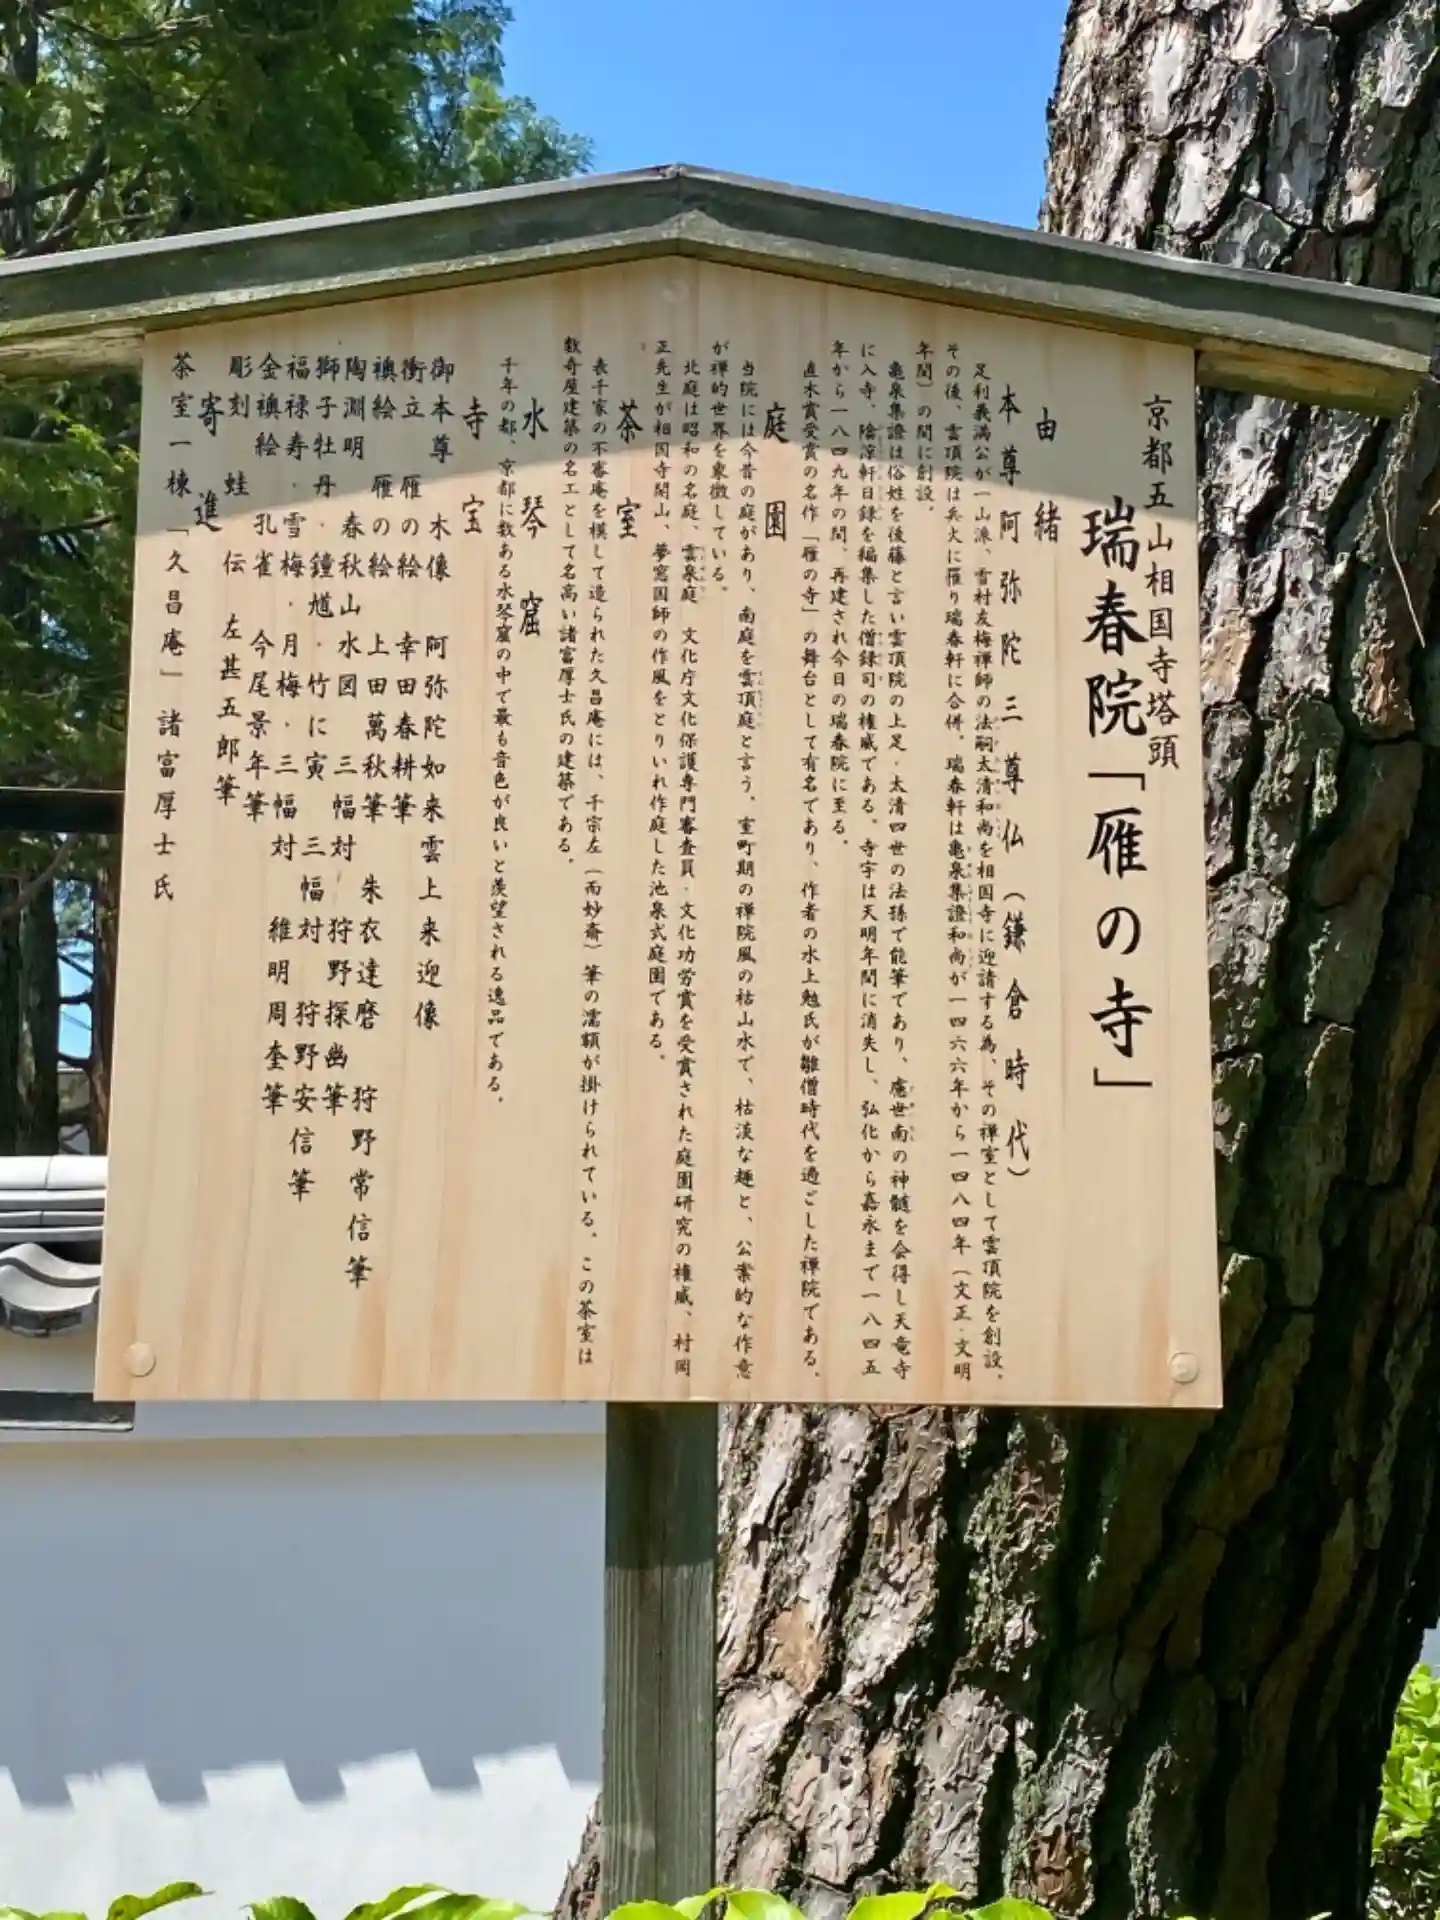 京都五山相国寺塔頭
瑞春院「雁の寺」
由緒
本尊阿弥陀三尊仏(鎌倉時代)
足利義満公が一山派、雪村友梅禅師の法嗣太清和尚を相国寺に迎請する為、その禅室として雲頂院を創設、
その後、雲頂院は兵火に罹り瑞春軒に合併。瑞春軒は亀泉集證和尚が一四六六年から一四八四年(文正・文明
年間)の間に創設。
亀泉集證は俗姓を後藤と言い雲頂院の上足・太清四世の法孫で能筆であり、虞世南の神髄を会得し天竜寺
に入寺、陰涼軒日録を編集した僧録司の権威である。寺宇は天明年間に消失し、弘化から嘉永まで一八四五
年から一八四九年の間、再建され今日の瑞春院に至る。
直木賞受賞の名作「雁の寺」の舞台として有名であり、作者の水上勉氏が雛僧時代を過ごした禅院である。
庭園
当院には今昔の庭があり、南庭を雲頂庭と言う、室町期の禅院風の枯山水で、枯淡な趣と、公案的な作意
が禅的世界を象徴している。
北庭は昭和の名庭、雲泉庭 文化庁文化保護専門審査員・文化功労賞を受賞された庭園研究の権威、村岡
正先生が相国寺開山、夢窓国師の作風をとりいれ作庭した池泉式庭園である。
茶室
表千家の不審庵を模して造られた久昌庵には、千宗左(而妙斎)筆の濡額が掛けられている、この茶室は
数奇屋建築の名工として名高い諸富厚士氏の建築である。
水琴窟
千年の都、京都に数ある水琴窟の中で最も音色が良いと羨望される逸品である。
寺宝
御本尊 木像 阿弥陀如来雲上来迎像
衝立 雁の絵 幸田春耕筆
襖絵 雁の絵 上田萬秋筆 朱衣達磨 狩野常信筆
陶淵明 春秋山水図 三幅対 狩野探幽筆
獅子牡丹・鐘馗・竹に寅 三幅対 狩野安信筆
福禄寿・雪梅・月梅・三幅対 維明周奎筆
金襖絵 孔雀 今尾景年筆
彫刻 蛙 伝 左甚五郎筆
寄進
茶室一棟「久昌庵」諸富厚士氏